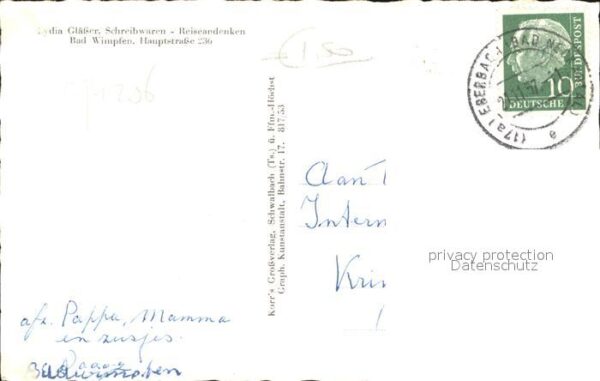 Lydia Gläßer, Schreibwaren - Reiseandenken
Bad Wimpfen, Hauptstraße 236
1.50
Korr's Großverlag, Schwalbach (Ts.) ü. Ffm.-Höchst
Graph. Kunstanstalt, Bahnstr. 17. 817/53
EBERBACH-BAD
(17a)
a
10
DEUTSCHE
BUNDESPOST
Aan
Intern
Kri
privacy protection
Datenschutz
afz. Pappa, Mamma
en zusjes.